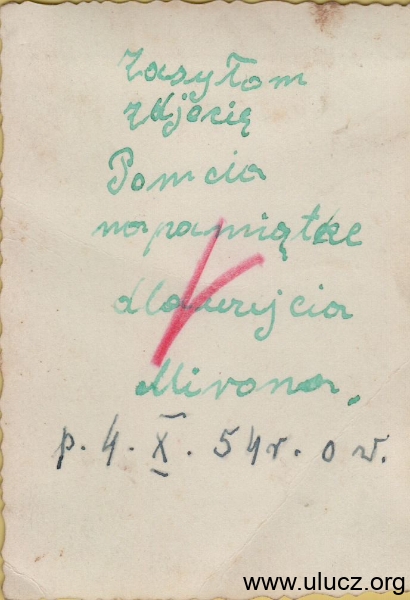 Zasyłom
zdjecię
Pomcia
na pamiątke
dla wujcia
Mirona.
p. 4. X. 54 r. o w.
www.ulucz.org